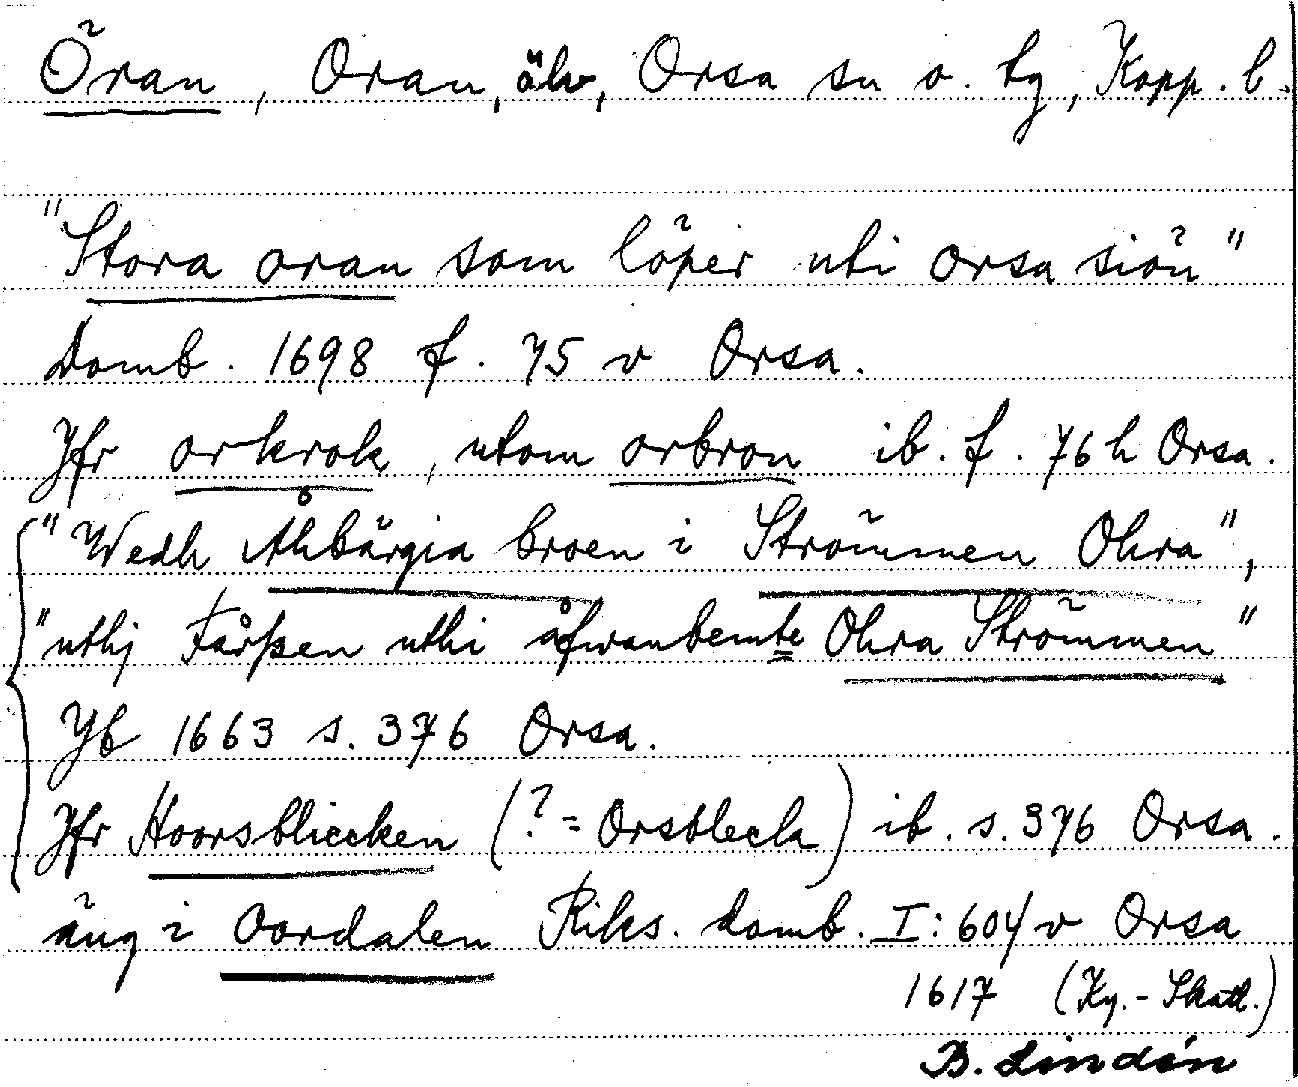 Öran, Oran, älv, Orsa sn o. tg, Kopp. l.
"Stora oran som löper uti orsa siön"
Domb. 1698 f. 75 v Orsa.
Jfr orkrok, utom orbron ib. f. 76 h Orsa.
"Wedh Åhbärgia broen i Strömmen Ohra",
"uthj Fårßen uthi åfwanbemte Ohra Strömmen"
Jb 1663 s. 376 Orsa.
Jfr Hoorsbliecken (? = Orsbleck) ib. s. 376 Orsa.
äng i Oordalen Riks. domb. I: 604 v Orsa
1617 (Ky.-Skatt.)
B. Lindén